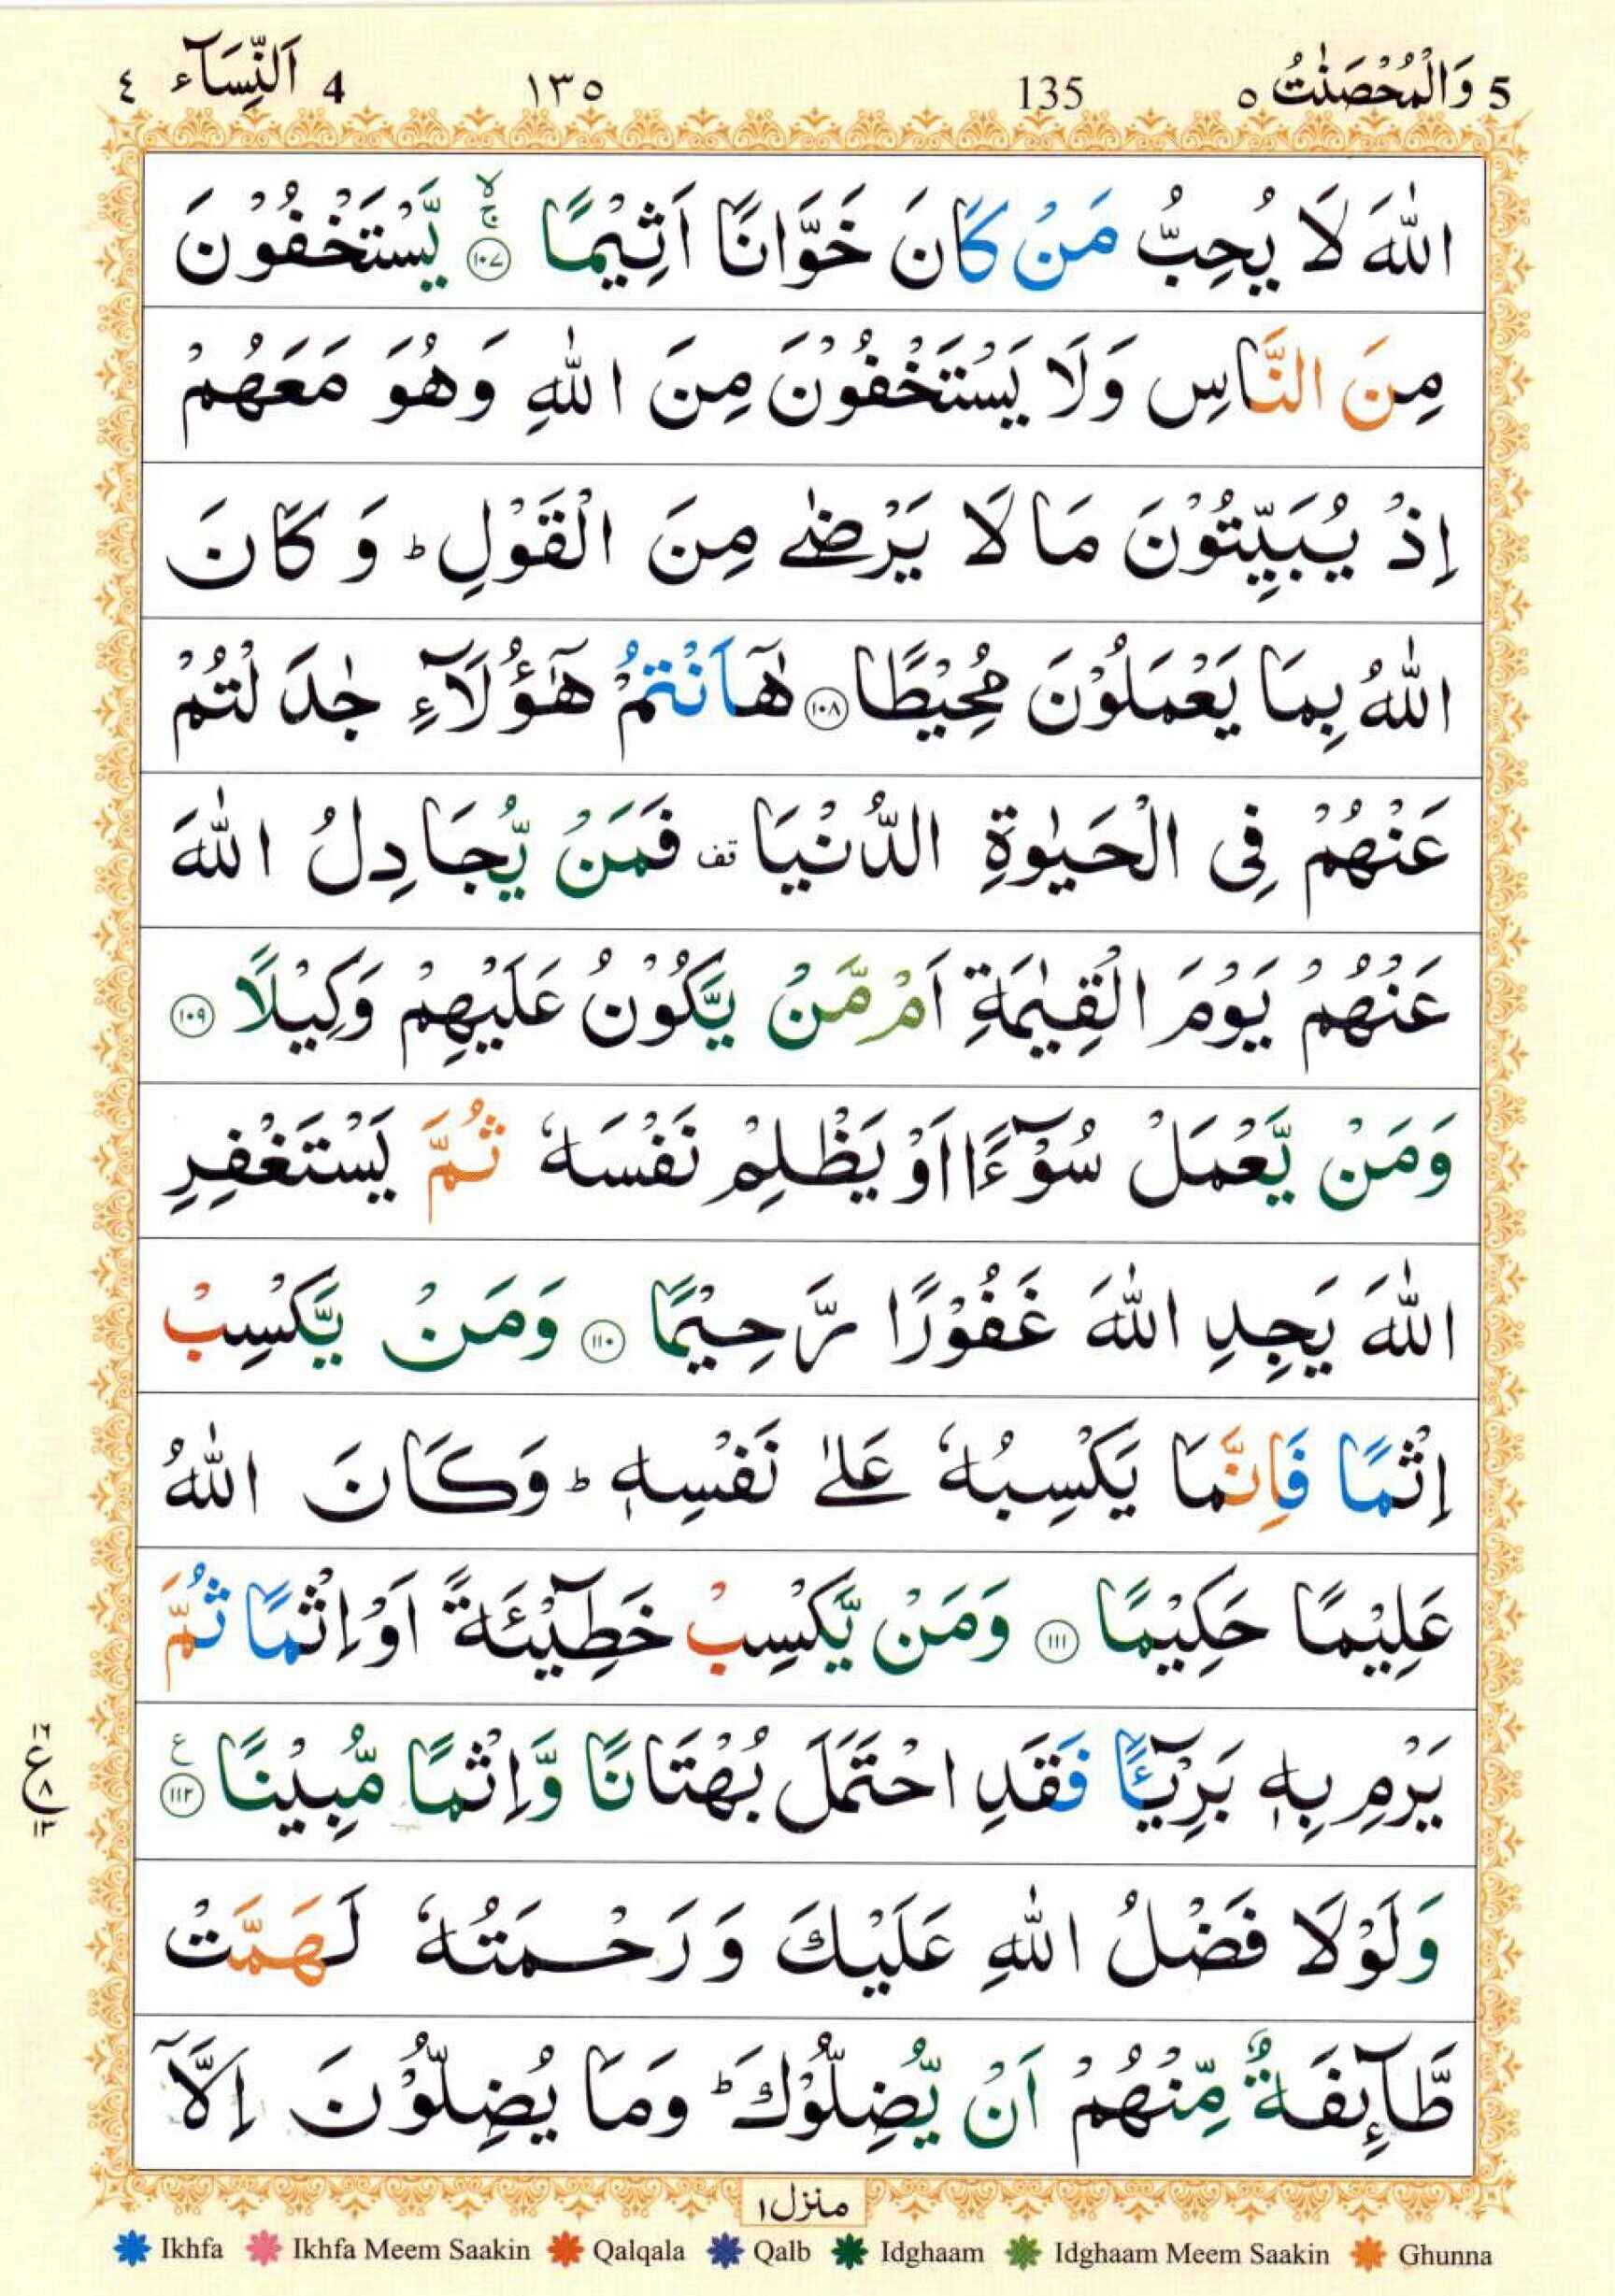 5 وَالْمُحْصَنٰتُ ٥ 135 ١٣٥ 4 اَلنِّسَآء ٤
اللّٰهَ لَا يُحِبُّ مَنْ كَانَ خَوَّانًا اَثِيْمًا ۙۚ ﴿١٠٧﴾ يَّسْتَخْفُوْنَ
مِنَ النَّاسِ وَلَا يَسْتَخْفُوْنَ مِنَ اللّٰهِ وَهُوَ مَعَهُمْ
اِذْ يُبَيِّتُوْنَ مَا لَا يَرْضٰى مِنَ الْقَوْلِ ؕ وَ كَانَ
اللّٰهُ بِمَا يَعْمَلُوْنَ مُحِيْطًا ﴿١٠٨﴾ هٰۤاَنْتُمْ هٰۤؤُلَآءِ جٰدَلْتُمْ
عَنْهُمْ فِى الْحَيٰوةِ الدُّنْيَا قف فَمَنْ يُّجَادِلُ اللّٰهَ
عَنْهُمْ يَوْمَ الْقِيٰمَةِ اَمْ مَّنْ يَّكُوْنُ عَلَيْهِمْ وَكِيْلًا ﴿١٠٩﴾
وَمَنْ يَّعْمَلْ سُوْٓءًا اَوْ يَظْلِمْ نَفْسَهٗ ثُمَّ يَسْتَغْفِرِ
اللّٰهَ يَجِدِ اللّٰهَ غَفُوْرًا رَّحِيْمًا ﴿١١٠﴾ وَمَنْ يَّكْسِبْ
اِثْمًا فَاِنَّمَا يَكْسِبُهٗ عَلٰى نَفْسِهٖ ؕ وَكَانَ اللّٰهُ
عَلِيْمًا حَكِيْمًا ﴿١١١﴾ وَمَنْ يَّكْسِبْ خَطِيْٓئَةً اَوْ اِثْمًا ثُمَّ
يَرْمِ بِهٖ بَرِيْٓـًٔا فَقَدِ احْتَمَلَ بُهْتَانًا وَّاِثْمًا مُّبِيْنًا ع ﴿١١٢﴾
١٦ ع ٨ ١٣
وَلَوْلَا فَضْلُ اللّٰهِ عَلَيْكَ وَ رَحْمَتُهٗ لَهَمَّتْ
طَّآئِفَةٌ مِّنْهُمْ اَنْ يُّضِلُّوْكَ ؕ وَمَا يُضِلُّوْنَ اِلَّآ
منزل ١
Ikhfa Ikhfa Meem Saakin Qalqala Qalb Idghaam Idghaam Meem Saakin Ghunna